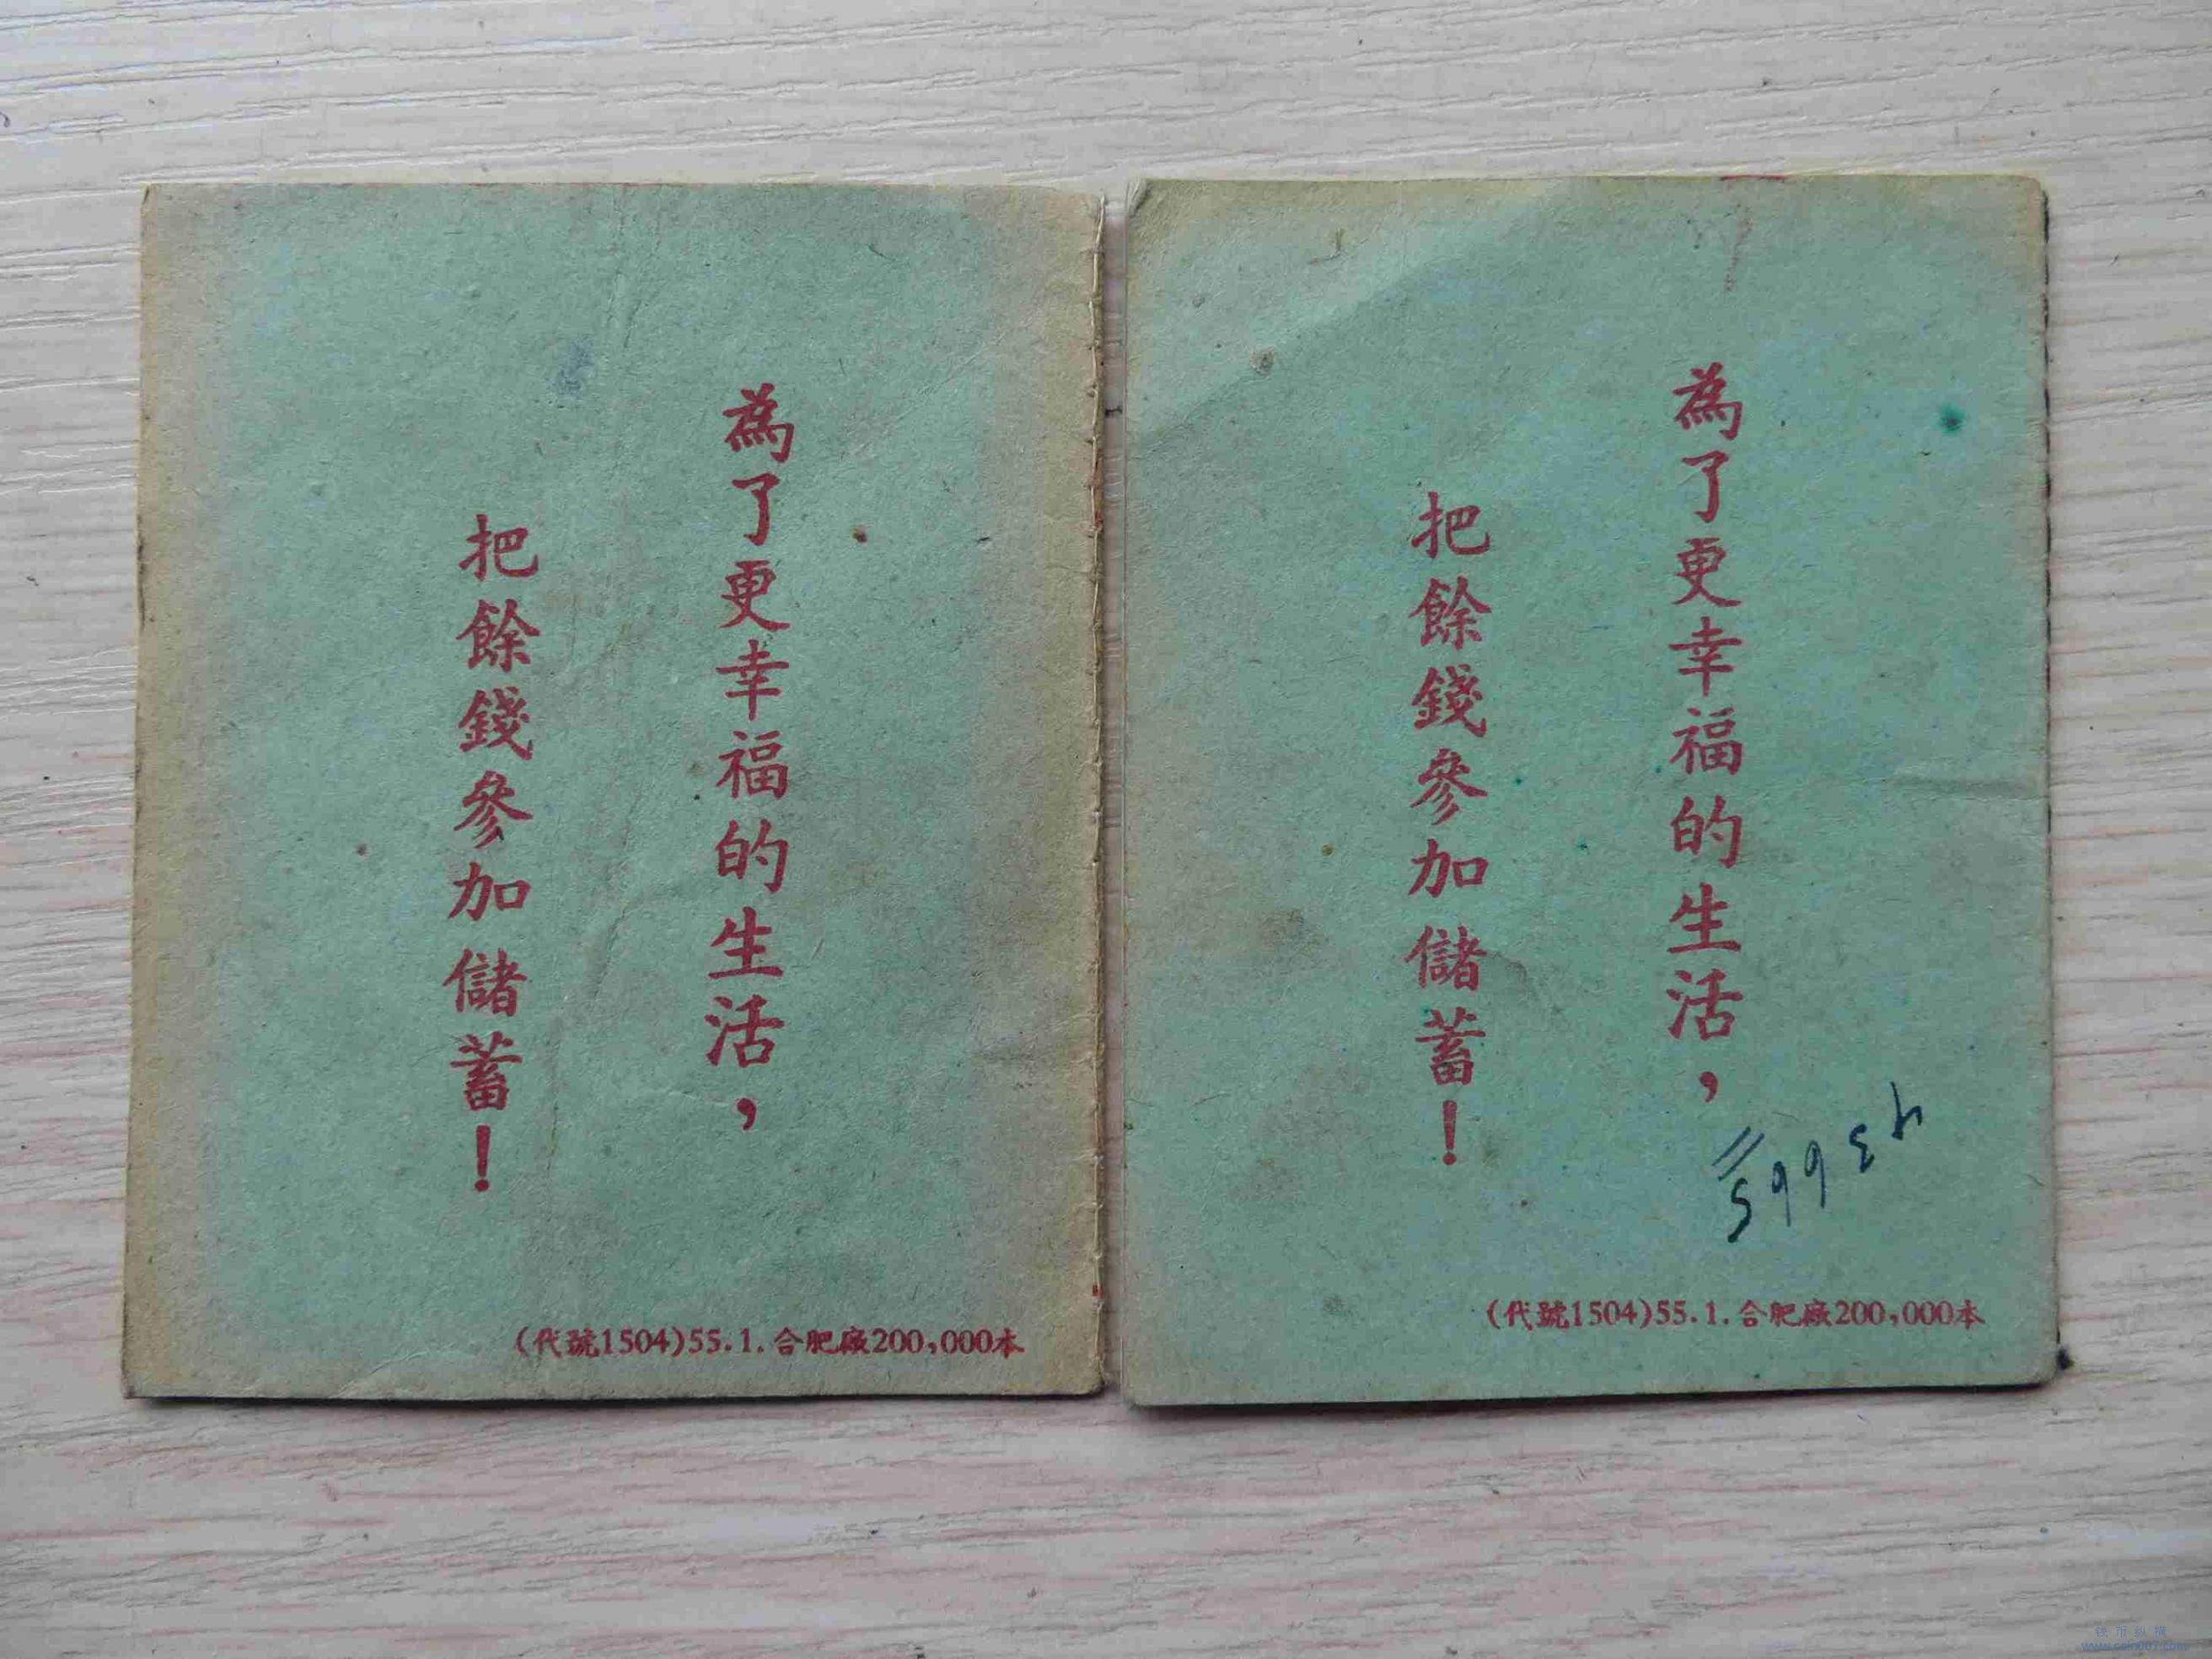 為了更幸福的生活，
把餘錢參加儲蓄！
(代號1504)55.1.合肥廠200,000本
為了更幸福的生活，
把餘錢參加儲蓄！
(代號1504)55.1.合肥廠200,000本
www.coin007.com